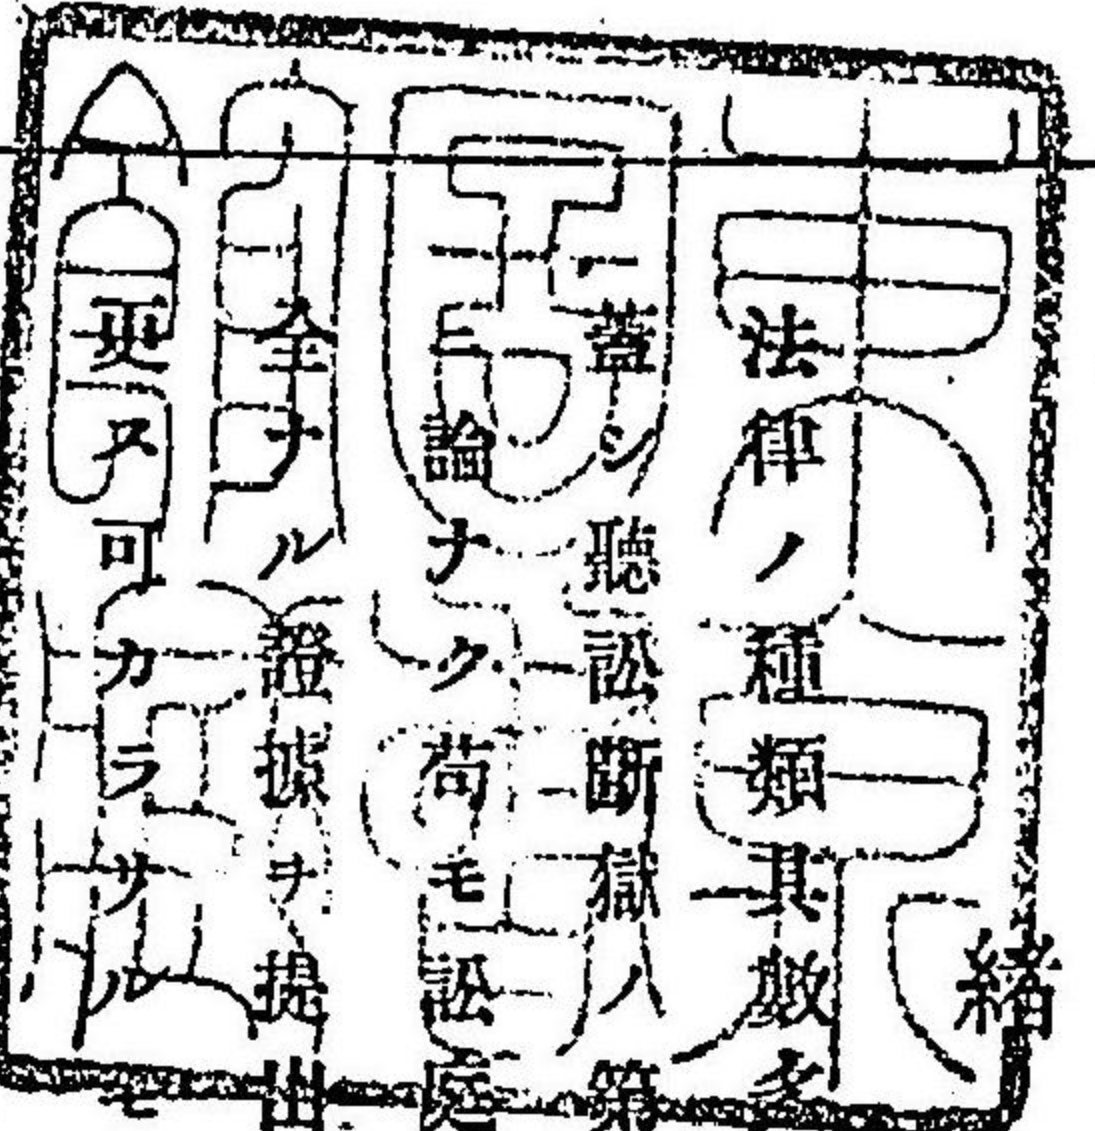 緒
法律ノ種類其數多
蓋シ聽訟斷獄ノ第
ニ論ナク苟モ訟庭
全ナル證據ヲ提出
更ス可カラサルモ